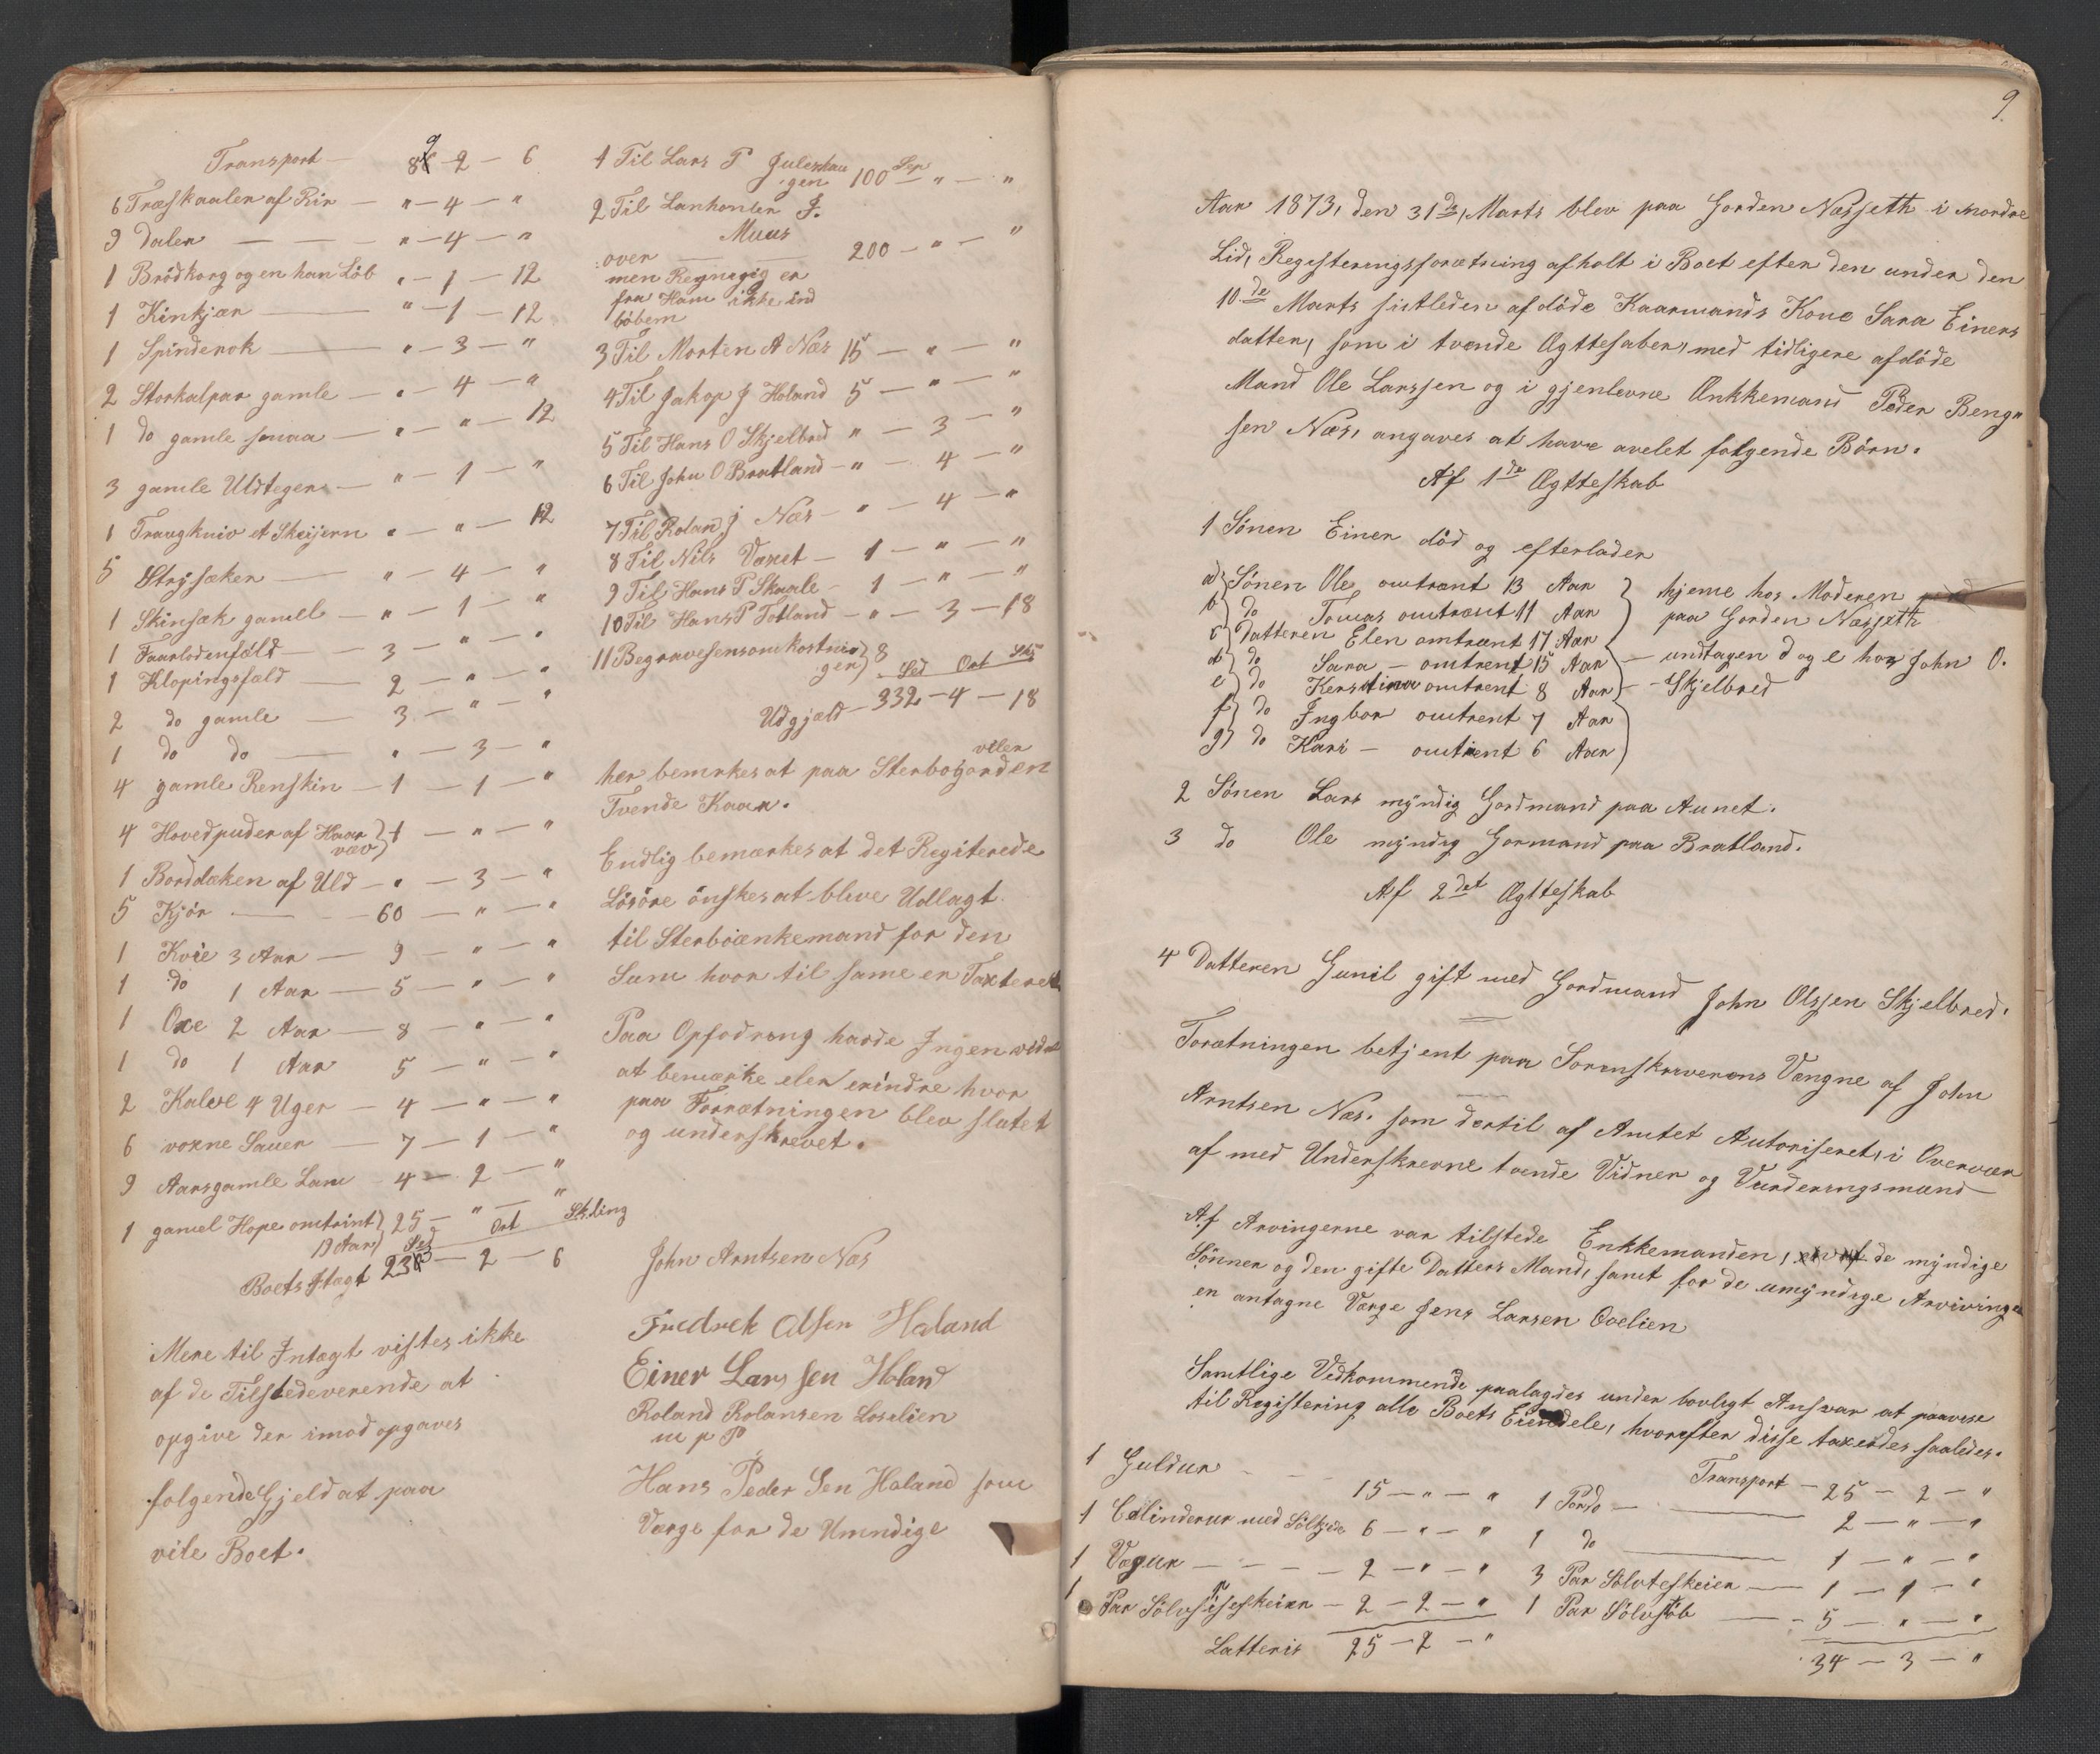 Transport — 89 — 2 — 6
6 Træskaaler af Rir — " — 4 — "
9 daler — — — " — 4 — "
1 Brödkorg og en han Löb " — 1 — 12
1 Kinkjær — " — 1 — 12
1 Spinderok — " — 3 — "
2 Storkalpar gamle — " — 4 — "
1 do gamle smaa — " — " — 12
3 gamle Uldteger — " — 1 — "
1 Traugkniv et Skeijern " — " — 12
5 Strysæker — " — 4 — "
1 Skinsæk gamel — " — 1 — "
1 Faarlodenfæld — 3 — " — "
1 Klopingsfæld — 2 — " — "
2 do gamle — 3 — " — "
1 do do — " — 3 — "
4 gamle Renskin — 1 — 1 — "
4 Hovedpuder af Haar
væv } 1 — " — "
1 Borddæken af Uld — " — 3 — "
5 Kjör — 60 — " — "
1 Kvie 3 Aar — 9 — " — "
1 do 1 Aar — 5 — " — "
1 Oxe 2 Aar — 8 — " — "
1 do 1 Aar 5 — " — "
2 Kalve 4 Uger — 4 — " — "
6 voxne Sauer — 7 — 1 — "
9 Aarsgamle Lam — 4 — 2 — "
1 gamel Hope omtrint
19 Aar } 25 — " — "
Sed Ort Skling
Boets Itægt 233 — 2 — 6
Mere til Intægt vistes ikke
af de Tilstedeverende at
opgive der imod opgaves
folgende Gjeld at paa
vile Boet.
1 Til Lars P Juleshau
gen 100 Sep — " — "
2 Til Lanhonler J.
Muus
over — 200 — " — "
men Regnigig er
fra Ham ikke ind
böbem
3 Til Morten A Næs 15 — " — "
4 Til Jakop J Holand 5 — " — "
5 Til Hans O Skjelbred " — 3 — "
6 Til John O Bratland — " — 4 — "
7 Til Roland J Næs — " — 4 — "
8 Til Nils Varet — 1 — " — "
9 Til Hans P Skaale — 1 — " — "
10 Til Hans P Totland — " — 3 — 18
11 Begravesensomkostnin
gen } 8
Sed Ort Sk
Udgjæld — 332 — 4 — 18
viler
her bemrkes at paa Sterbogorden
Tvende Kaar.
Endlig bemærkes at det Regiterede
Lösöre önskes at blive Udlagt
til Sterboænkemand for den
Sum hvor til same er Taxteret
Paa Opfodreng havde Ingen vider
at bemærke eler erindre hvor
paa Forrætningen blev slutet
og underskrevet.
John Arntsen Næs
Fredrek Olsen Holand
Einer Larssen Holand
Roland Rolansen Loselien
m p P
Hans Peder Sen Holand som
Værge for de Umndige
9
Aar 1873, den 31de, Marts blev paa Gorden Næsseth i nordre
Lid, Registeringsforætning afholt i Boet efter den under den
10de Marts sistleden afdöde Kaarmands Kone Sara Einers
datter, som i tvende Ægttesaber, med tidligere afdöde
Mand Ole Larssen og i gjenlevne Ænkkemand Peder Beng"
sen Næs, angaves at have avelet folgende Börn.
Af 1de Ægtteskab
1 Sönen Einer död og efterlader
a) Sönen Ole omtrent 13 Aar
b) do Tomas omtrent 11 Aar
c) Datteren Elen omtrent 17 Aar
d) do Sara — omtrent 15 Aar
e) do Kerstina omtrent 8 Aar
f) do Ingbor omtrent 7 Aar
g) do Kari — omtrent 6 Aar
hjeme hos Moderen
paa Gorden Næsseth
— undtagen d og e hos John O.
— Skjelbred
2 Sönen Lars myndig Gordmand paa Aunet.
3 do Ole myndig Gormand paa Bratland.
Af 2det Ægtteskab
4 Datteren Gunil gift med Gordmand John Olssen Skjelbred.
Forætningen betjent paa Sorenskreverens Vængne af John
Arntsen Næs. som dertil af Amtet Autoriseret, i Overvær
af med Underskrevne tvende Vidner og Vurderingsmænd —
Af Arvingerne var tilstede Enkkemanden, de myndige
Sönner og den gifte Datters Mand, samt for de umyndige Arvivinger
en antagne Værge Jens Larsen Qvelien
Samtlige Vedkommende paalagdes under lovligt Ansvar at paavise
til Registering alle Boets Eiendele, hvorefter disse taxerdes saaledes.
1 Guldur — — 15 — " — "
1 Celinderur med Sölkjede 6 — " — "
1 Vægur — — — 2 — " — "
1 Par Sölvspiseskeier — 2 — 2 — "
Latteris 25 — 2 — "
Transport — 25 — 2 — "
1 Pordo — 2 — " — "
1 do — 1 — " — "
3 Par Sölvteskeier — 1 — 1 — "
1 Par Sölvstöb — 5 — " — "
34 — 3 — "